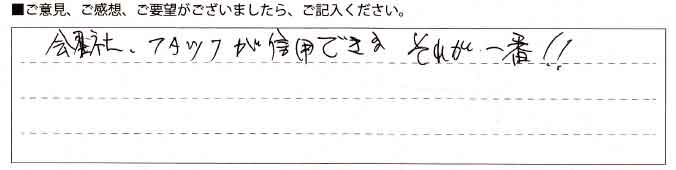 ■ご意見、ご感想、ご要望がございましたら、ご記入ください。
会社、スタッフが信用できる それが一番!!